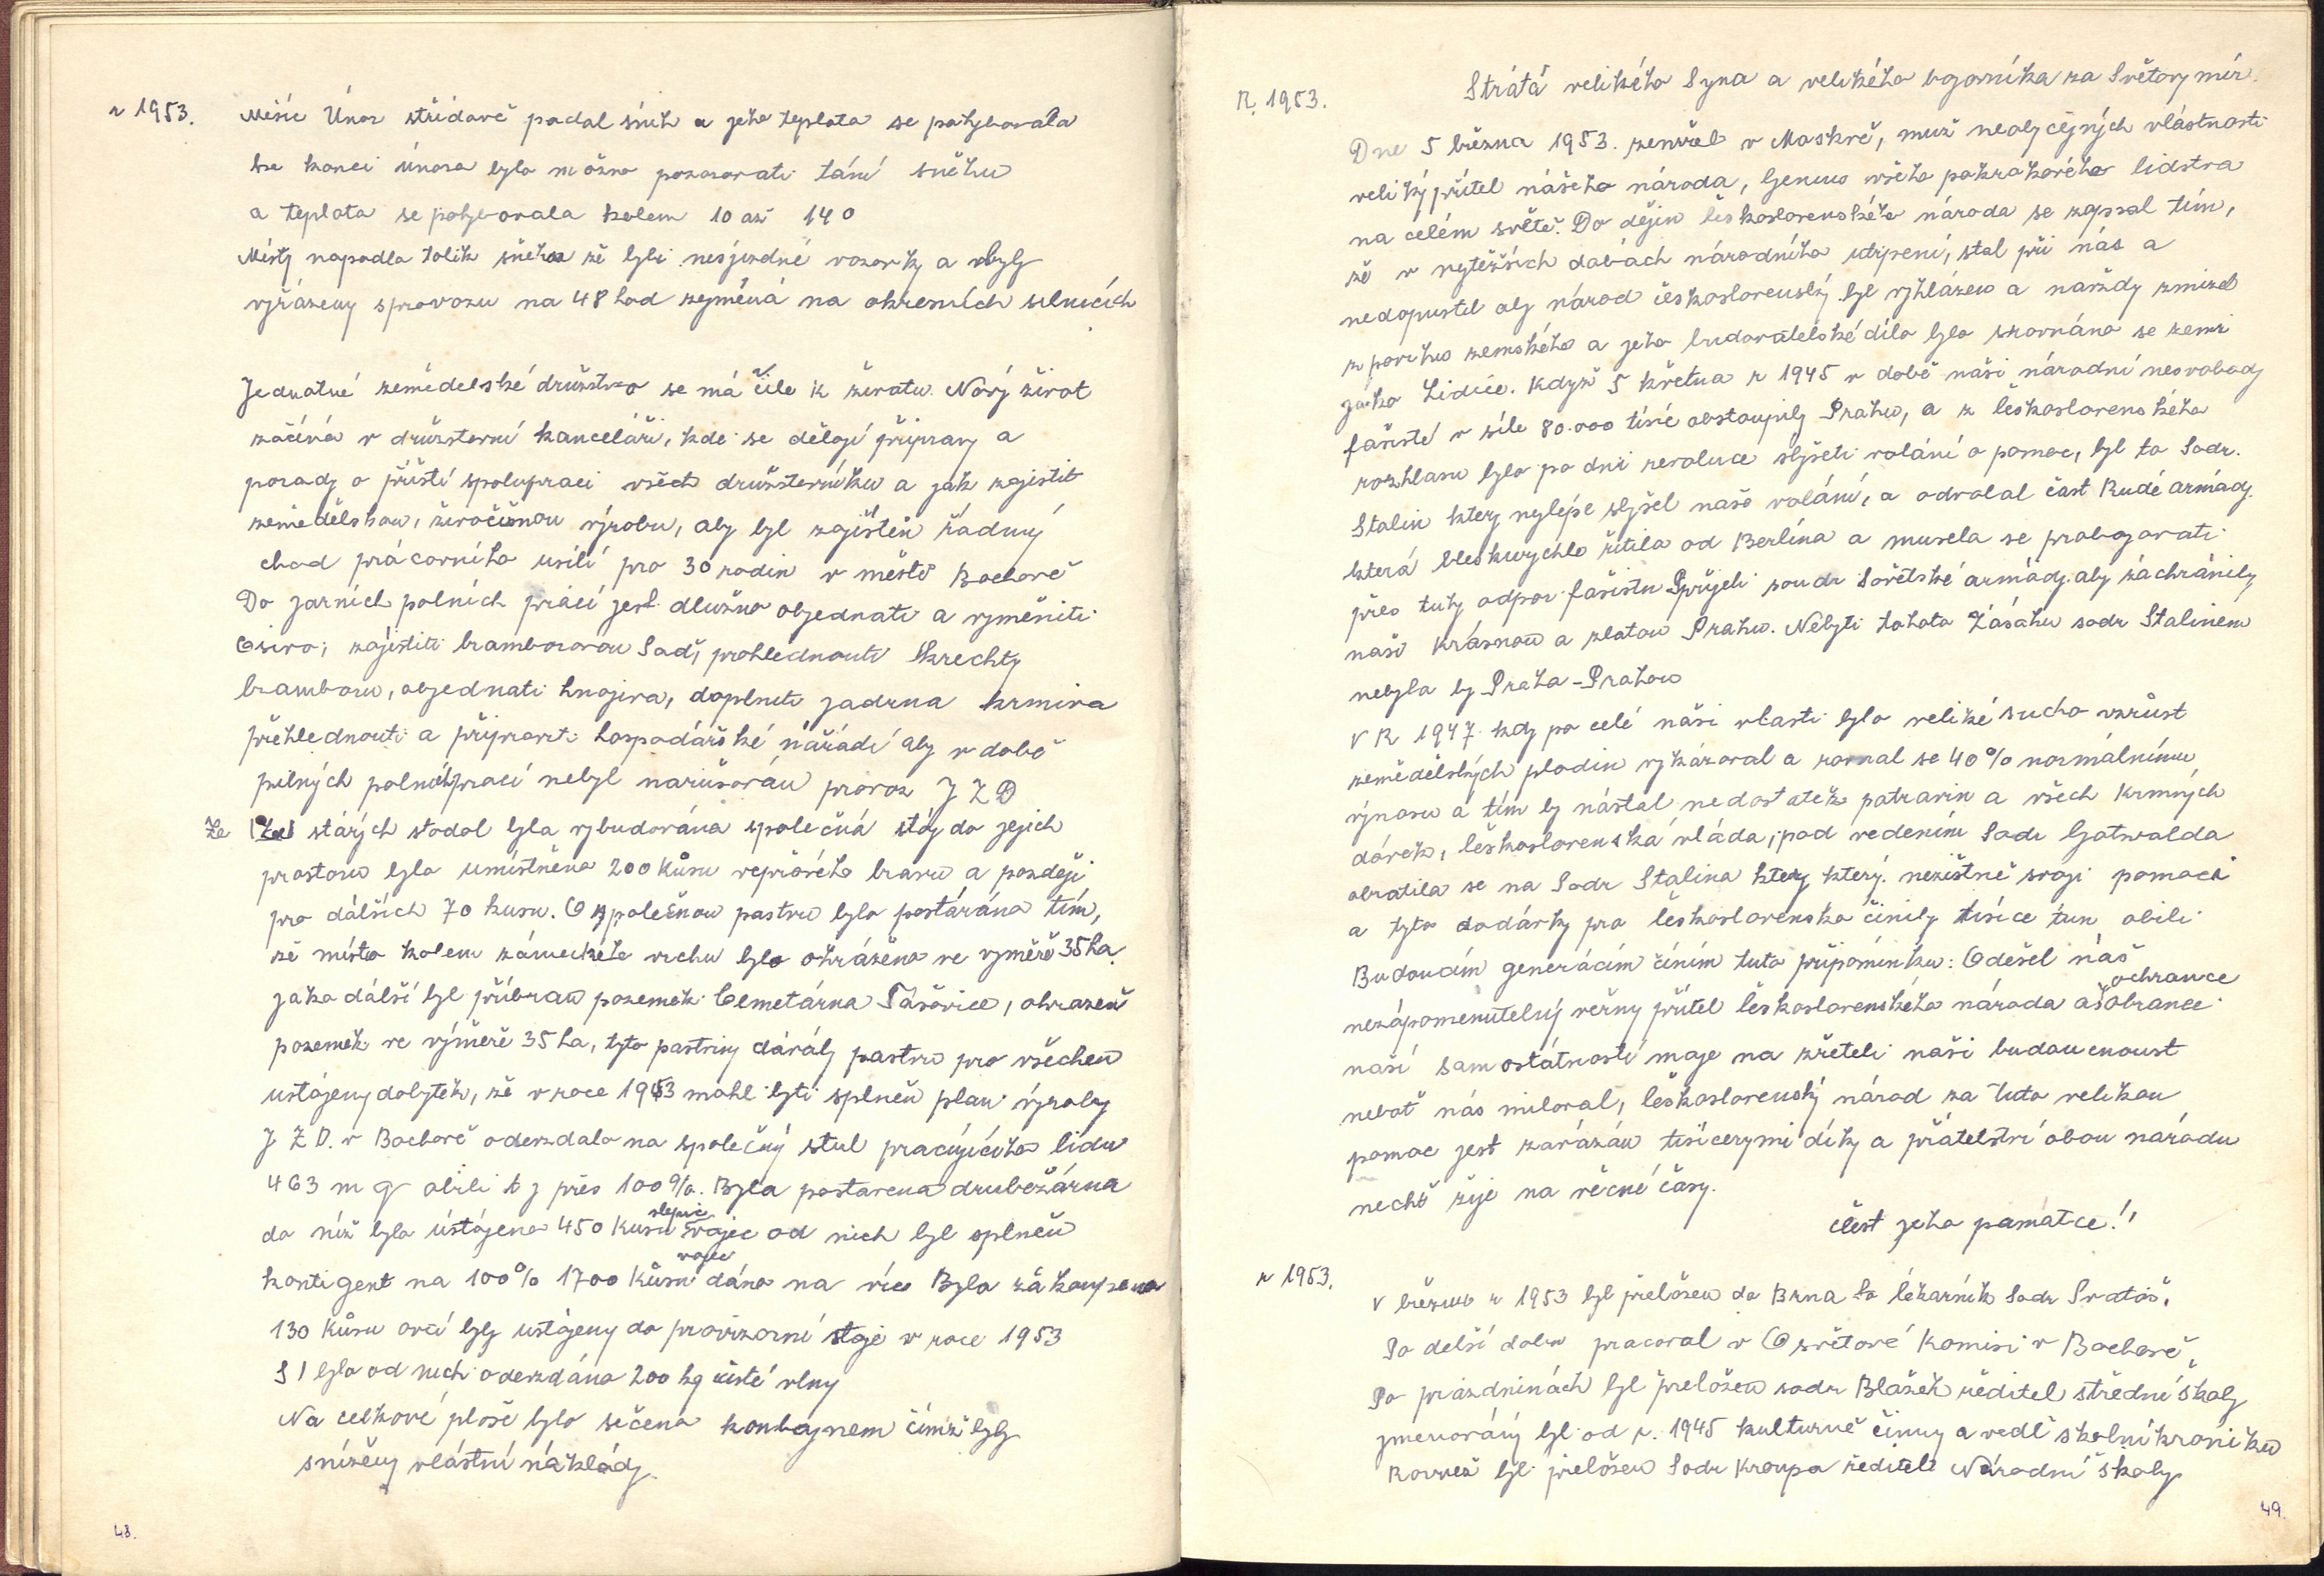 r 1953.
Měsíc Únor střídavě padal sníh a jeho teplota se pohybovala
ke konci února bylo možno pozorovati tání sněhu
a teplota se pohybovala kolem 10 až 14°
Místy napadlo tolik sněhu že byli nesjízdné vozovky a byly
vyřázeny sprovozu na 48 hod zejména na okresních silnicích
Jednotné zemědelské družstvo se má čile k životu. Nový život
začíná v družstevní kanceláři, kde se dělají přípravy a
porady o příští spolupraci všech družsterníku a jak zajistit
zemědělskou, živočišnou výrobu, aby byl zajištěn řádný
chod prácovního usilí pro 30 rodin v městě Bochově
Do jarních polních prácí jest dlužno objednati a vyměniti
Osivo, zajistiti bramborovou Saď, prohlednouti krechty
bramboru, objednati hnojiva, doplniti jadrna krmiva
přehlednouti a připravit hospodářské nářádí aby v době
pilných polních prací nebyl narušován provoz J Z D
Ze starých stodol byla vybudována společná stáj do jejich
prostoru bylo umístněno 200 kůsu vepřového bravu a později
pro dálších 70 kusu. O společnou pastvu bylo postáráno tím,
že místo kolem zámeckého vrchu bylo ohrážěno ve vyměře 35 ha.
jako dálší byl příbran pozemek Cemetárna Tášovice, ohrazen
pozemek ve výměře 35 ha, tyto pastviny dávály pastvu pro všechen
ustájeny dobytek, že v roce 1953 mohl byti splněn plan výroby
J Z D. v Bochově oderzdalo na společný stul pracújícího lidu
463 m q obili t j přes 100%. Byla postavena drubežárna
do níž bylo ústájeno 450 kusu slepic vajec od nich byl splněn
kontigent na 100% 1700 kůsu vajec dáno na víc Bylo zákoupeno
130 kůsu ovcí byly ustájeny do provizorní stáje v roce 1953
81 bylo od nich oderzdáno 200 kg čisté vlny
Na celkové ploše bylo sečeno kombajnem čímž byly
snížěny vlástní náklády.
48.
R. 1953.
Strátá velikého Syna a velikého bojovníka za Světovy mír.
Dne 5 března 1953. zemřel v Moskvě, muž neobyčejných vlástnosti
veliký přítel nášeho národa, Genius všeho pokrokového lidstva
na celém světě. Do dějin československého národa se zapsal tím,
že v nejtěžších dobách národního utrpení, stal při nás a
nedopustil aby národ československý byl vyhlázen a navždy zmizel
z povrhu zemského a jeho budovatelské dílo bylo srovnáno se zemí
jako Lidice. Když 5 května r 1945 v době naši národní nesvobody
fašisté v síle 80.000 tísíc obstoupily Prahu, a z československého
rozhlasu bylo po dni revoluce slyšeti volání o pomoc, byl to Sodr.
Stalin ktery nejlépe slyšel naše volání, a odvolal část Rudé armády
která bleskurychle řítila od Berlína a musela se probojovati
přes tuhy odpor fašistu Přijeli soudr Sovětské armády aby záchránily
naši krásnou a zlatou Prahu. Nebyti tohoto Zásáhu sodr Stalinem
nebyla by Praha-Prahou
V R 1947 kdy po celé náši vlasti bylo veliké sucho vzrůst
zemědělských plodin vykázoval a rovnal se 40% normálnímu
výnosu a tím by nástal nedostatek potravin a všech krmných
dávek, československá vláda, pod vedením Sodr Gotwalda
obratila se na Sodr Stalina ktery který nezištně svoji pomocí
a tyto dodávky pro československo činily tisíce tun obili
Budoucím generácím činím tuto připomínku: Odešel náš
nezápomenutelný věrny přítel československého národa a ochrance obrance
naší samostátnosti maje na zřeteli naši budoucnoust
neboť nás miloval, československý národ za tuto velikou
pomoc jest zavázán tisícerymi díky a přátelství obou národu
nechť žije na věčné časy.
čest jeho památce!!
r 1953.
V březnu r 1953 byl přeložen do Brna So lékarník Sodr Svatoš.
Po delší dobu pracoval v Osvětové Komisi v Bochově,
Po prázdninách byl přeložen sodr Blažek ředitel střední školy
jmenováný byl od r. 1945 kulturně činny a vedl školní kroniku
Rovněž byl přeložen Sodr Kroupa ředitel Národní školy
49.